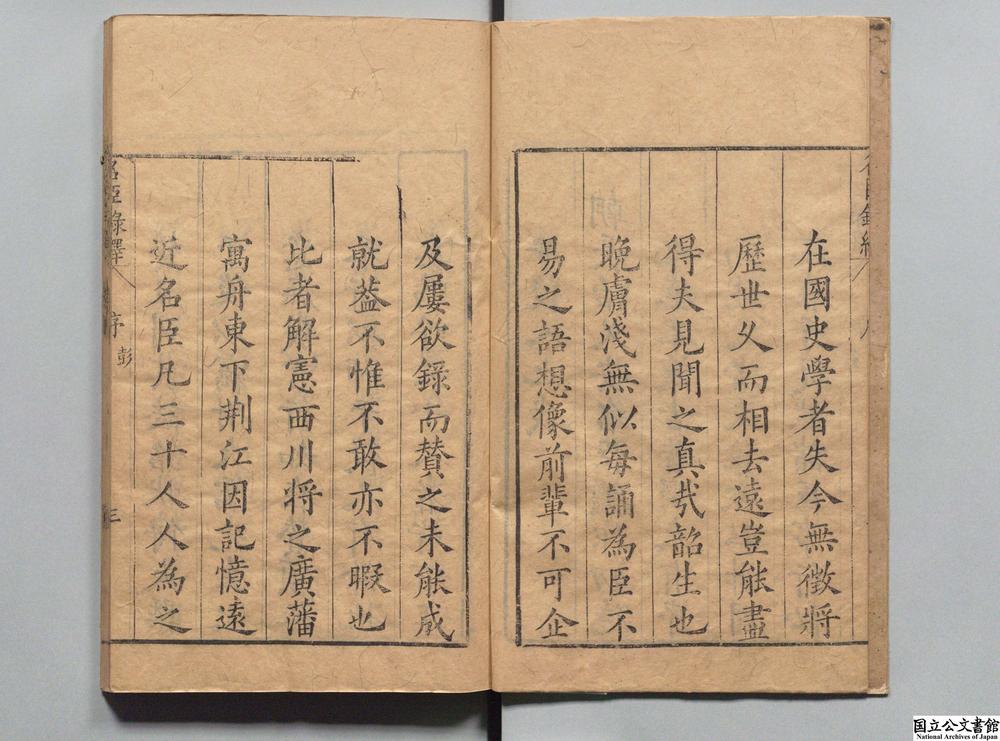 在國史學者失今無徵將
歷世久而相去遠豈能盡
得夫見聞之真㢤韶生也
晚膚淺無似每誦為臣不
易之語想像前輩不可企
及屢欲錄而賛之未能成
就葢不惟不敢亦不暇也
比者解憲西川將之廣藩
寓舟東下荆江因記憶遠
近名臣凡三十人人為之
名臣錄
序
彭
三
国立公文書館
National Archives of Japan